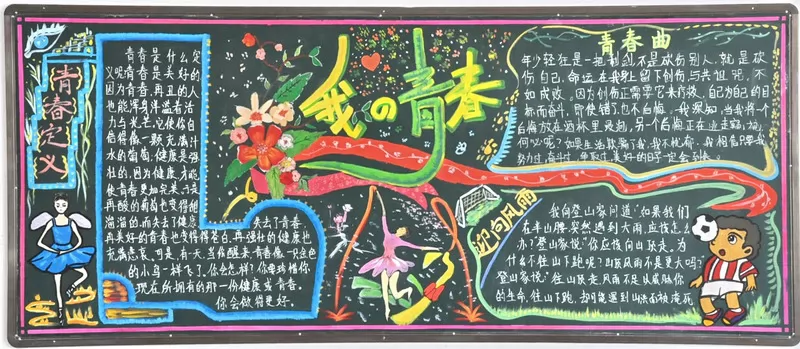 青春定义
青春是什么定
义呢青春是美好的
因为青春,再丑的人
也能浑身得溢着活
力与光芒,它使你自
信得像一颗充满汁
水的葡萄,健康是强
壮的,因为健康,才能
使青春更加完美,
再酸的葡萄也变得甜
溜溜的,而失去了健康
失去了青春
再美好的青春也变得苍白,再强壮的健康也
充满悲哀,可是,有一天,当你醒来,青春像一只金色
的小鸟一样飞了,你会怎样?你要珍惜你
现在所拥有的那一份健康或青春。
你会做得更好。
我の青春
青春曲
年少轻狂是一把利剑,不是砍伤别人,就是砍
伤自己,命运在我身上留下创伤与共
如成败。因为创伤正需学会来疗救,自己为自己的目
标而奋斗,即使错了,也不后悔,我深知,当我将一个
后悔放在酒杯里
何必呢?如果生活欺骗了我,我不忧
努力过,奋斗过,争取过,美好的日子一定会到来。
迎向风雨
我向登山家问道:“如果我们
在半山腰,突然遇到大雨,应该怎么
办?”登山家说:“你应该向山顶走。为
什么不往山下跑呢?山顶风雨不是更大吗?”
登山家说:“往山顶走,风雨不足以威胁你
的生命,往山下跑,却可能遇到山洪而被淹死